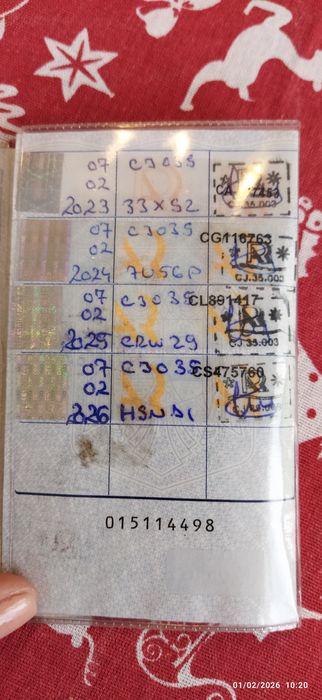 07 C3035
02
2023 33XS2
R
CJ.35.003
07 C3035 CG116763
02 R
2024 7U5GP CJ.35.003
07 C3035 CL891417
02 R
2025 CRW29 CJ.35.003
07 C3035 CS475760
02 R
2026
015114498
01/02/2026 10:20